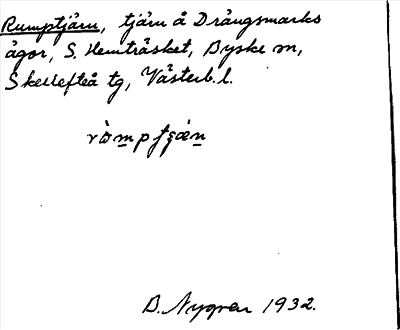 Rumptjärn, tjärn å Drängsmarks
ägor, S. Hemträsket, Byske sn,
Skellefteå tg, Västerb. l.
D. Nygren 1932.